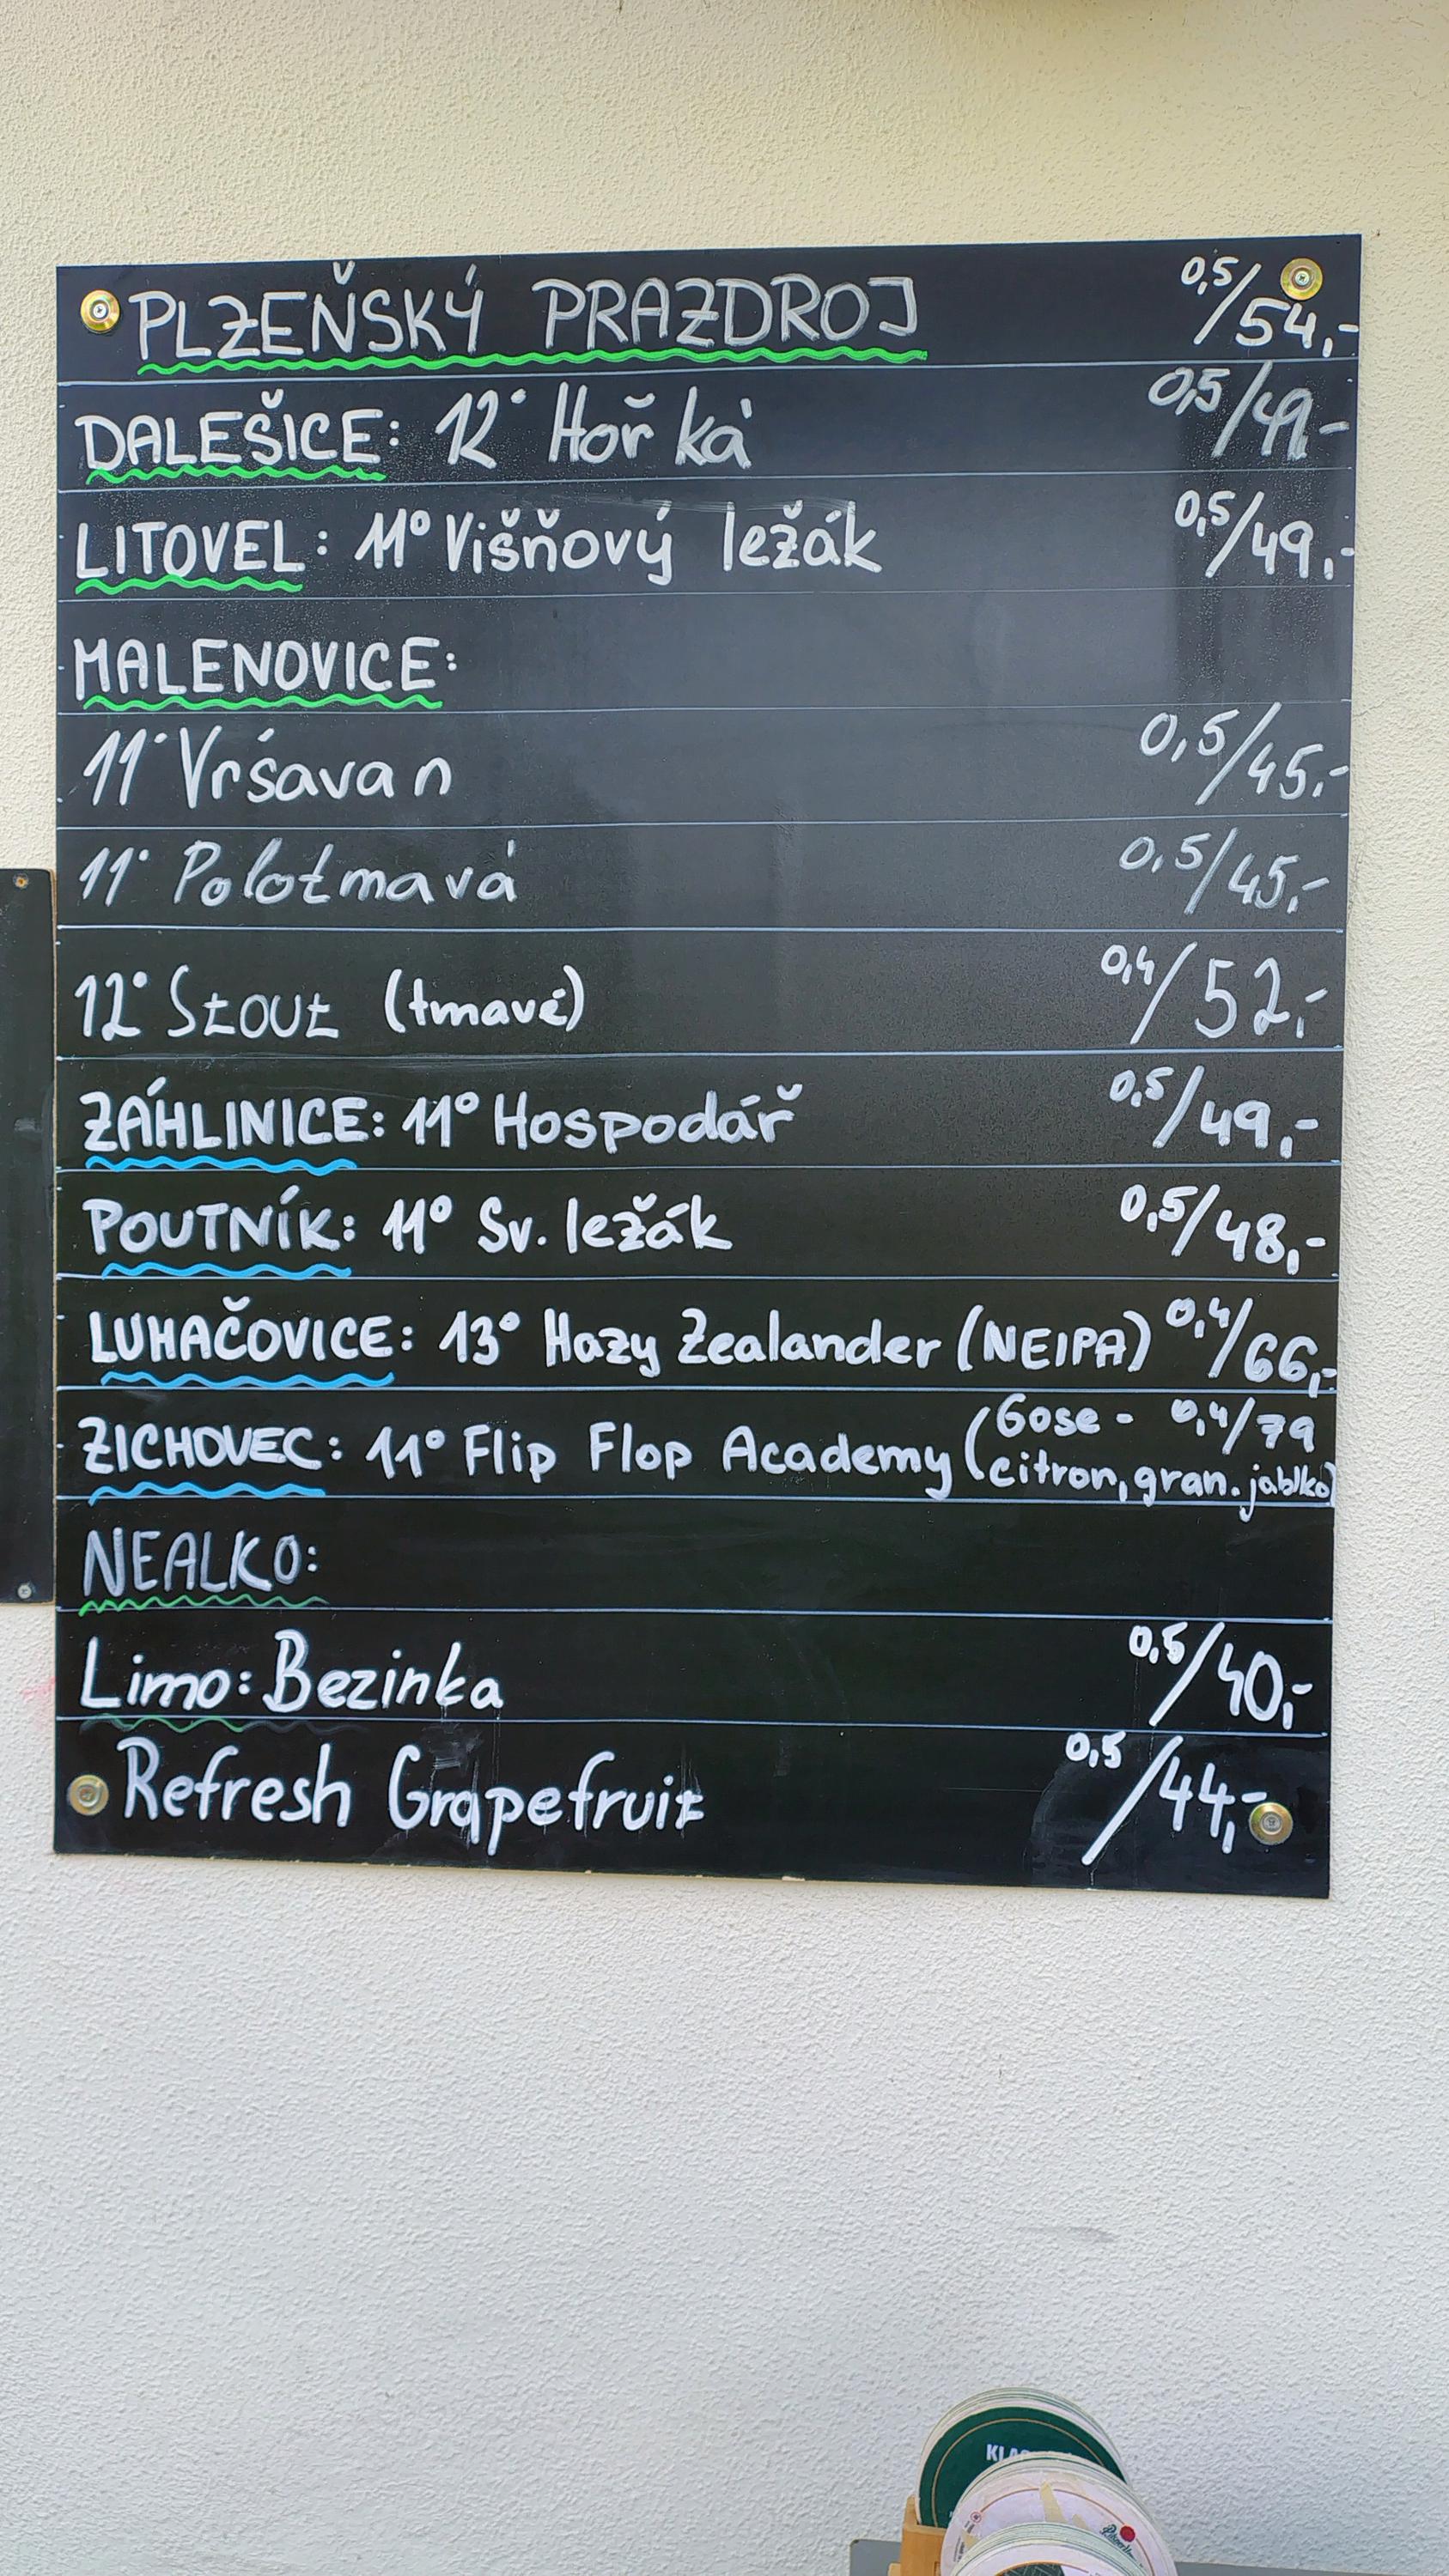 PLZEŇSKÝ PRAZDROJ 0,5/54,-
DALEŠICE: 12° Hořká 0,5/49,-
LITOVEL: 11° Višňový ležák 0,5/49,-
MALENOVICE:
11° Vršavan 0,5/45,-
11° Polotmavá 0,5/45,-
12° Stout (tmavé) 0,4/52,-
ZÁHLINICE: 11° Hospodář 0,5/49,-
POUTNÍK: 11° Sv. ležák 0,5/48,-
LUHAČOVICE: 13° Hazy Zealander (NEIPA) 0,4/66,-
ZICHOVEC: 11° Flip Flop Academy (Gose - 0,4/79
citron, gran. jablko)
NEALKO:
Limo: Bezinka 0,5/40,-
Refresh Grapefruit 0,5/44,-